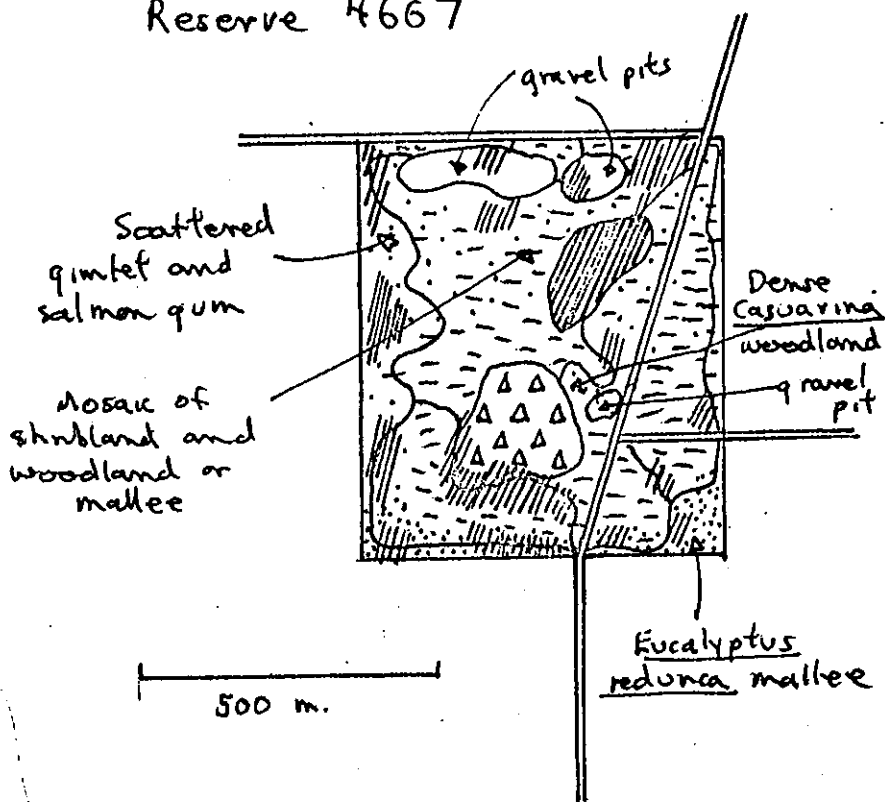 Reserve 4667
gravel pits
Scattered
gimlet and
salmon gum
Dense
Casuarina
woodland
gravel
pit
Mosaic of
shrubland and
woodland or
mallee
Eucalyptus
redunca mallee
500 m.